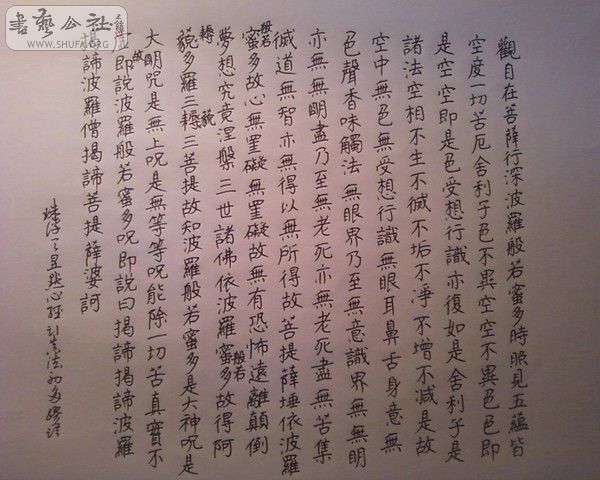 觀自在菩薩行深波羅般若蜜多時照見五蘊皆
空度一切苦厄舍利子色不異空空不異色色即
是空空即是色受想行識亦復如是舍利子是
諸法空相不生不滅不垢不淨不增不減是故
空中無色無受想行識無眼耳鼻舌身意無
色聲香味觸法無眼界乃至無意識界無無明
亦無無明盡乃至無老死亦無老死盡無苦集
滅道無智亦無得以無所得故菩提薩埵依波羅
般若
蜜多故心無罣礙無罣礙故無有恐怖遠離顛倒
夢想究竟涅槃三世諸佛依波羅蜜多故得阿
般若
耨 貌
貌多羅三耨三菩提故知波羅般若蜜多是大神咒是
大明咒是無上咒是無等等咒能除一切苦真實不
故
即說波羅般若蜜多咒即說曰揭諦揭諦波羅
揭諦波羅僧揭諦菩提薩婆訶
心經
書藝公社
WWW.SHUFA.ORG